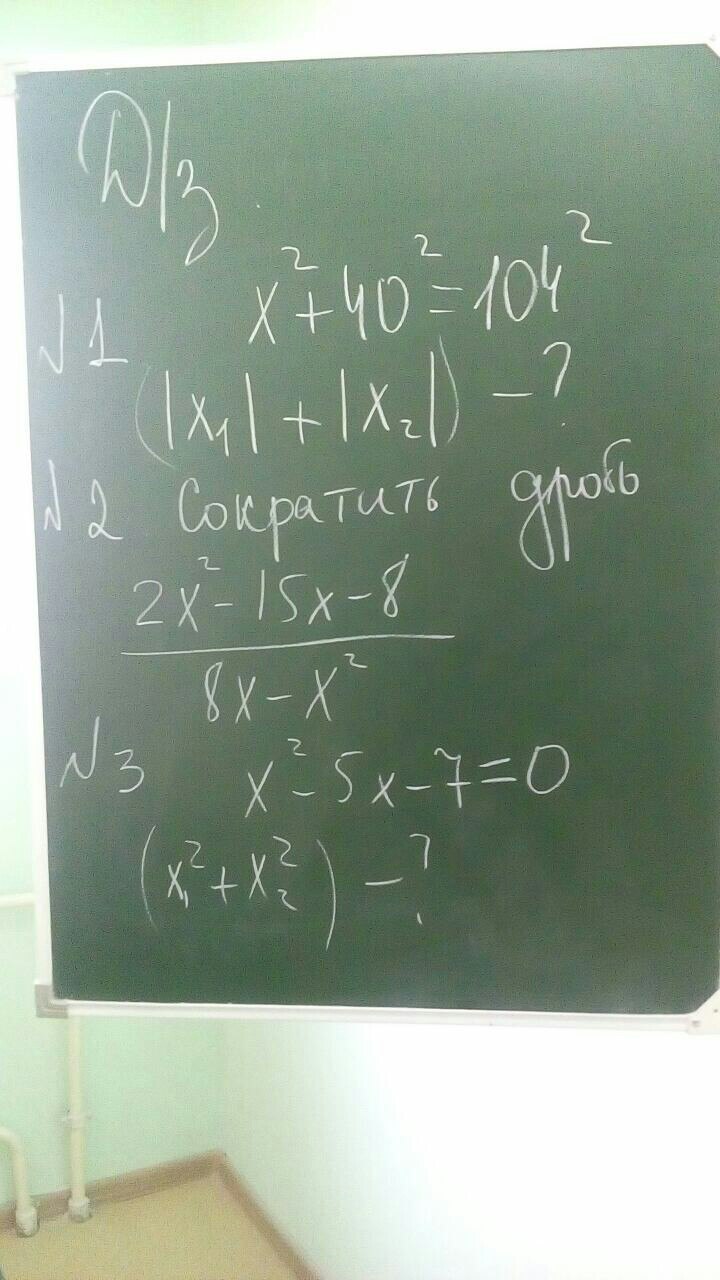 Д/з.
N1 x²+40²=104²
(|x₁|+|x₂|) - ?
N2 Сократить дробь
2x²-15x-8
8x-x²
N3 x²-5x-7=0
(x₁²+x₂²) - ?